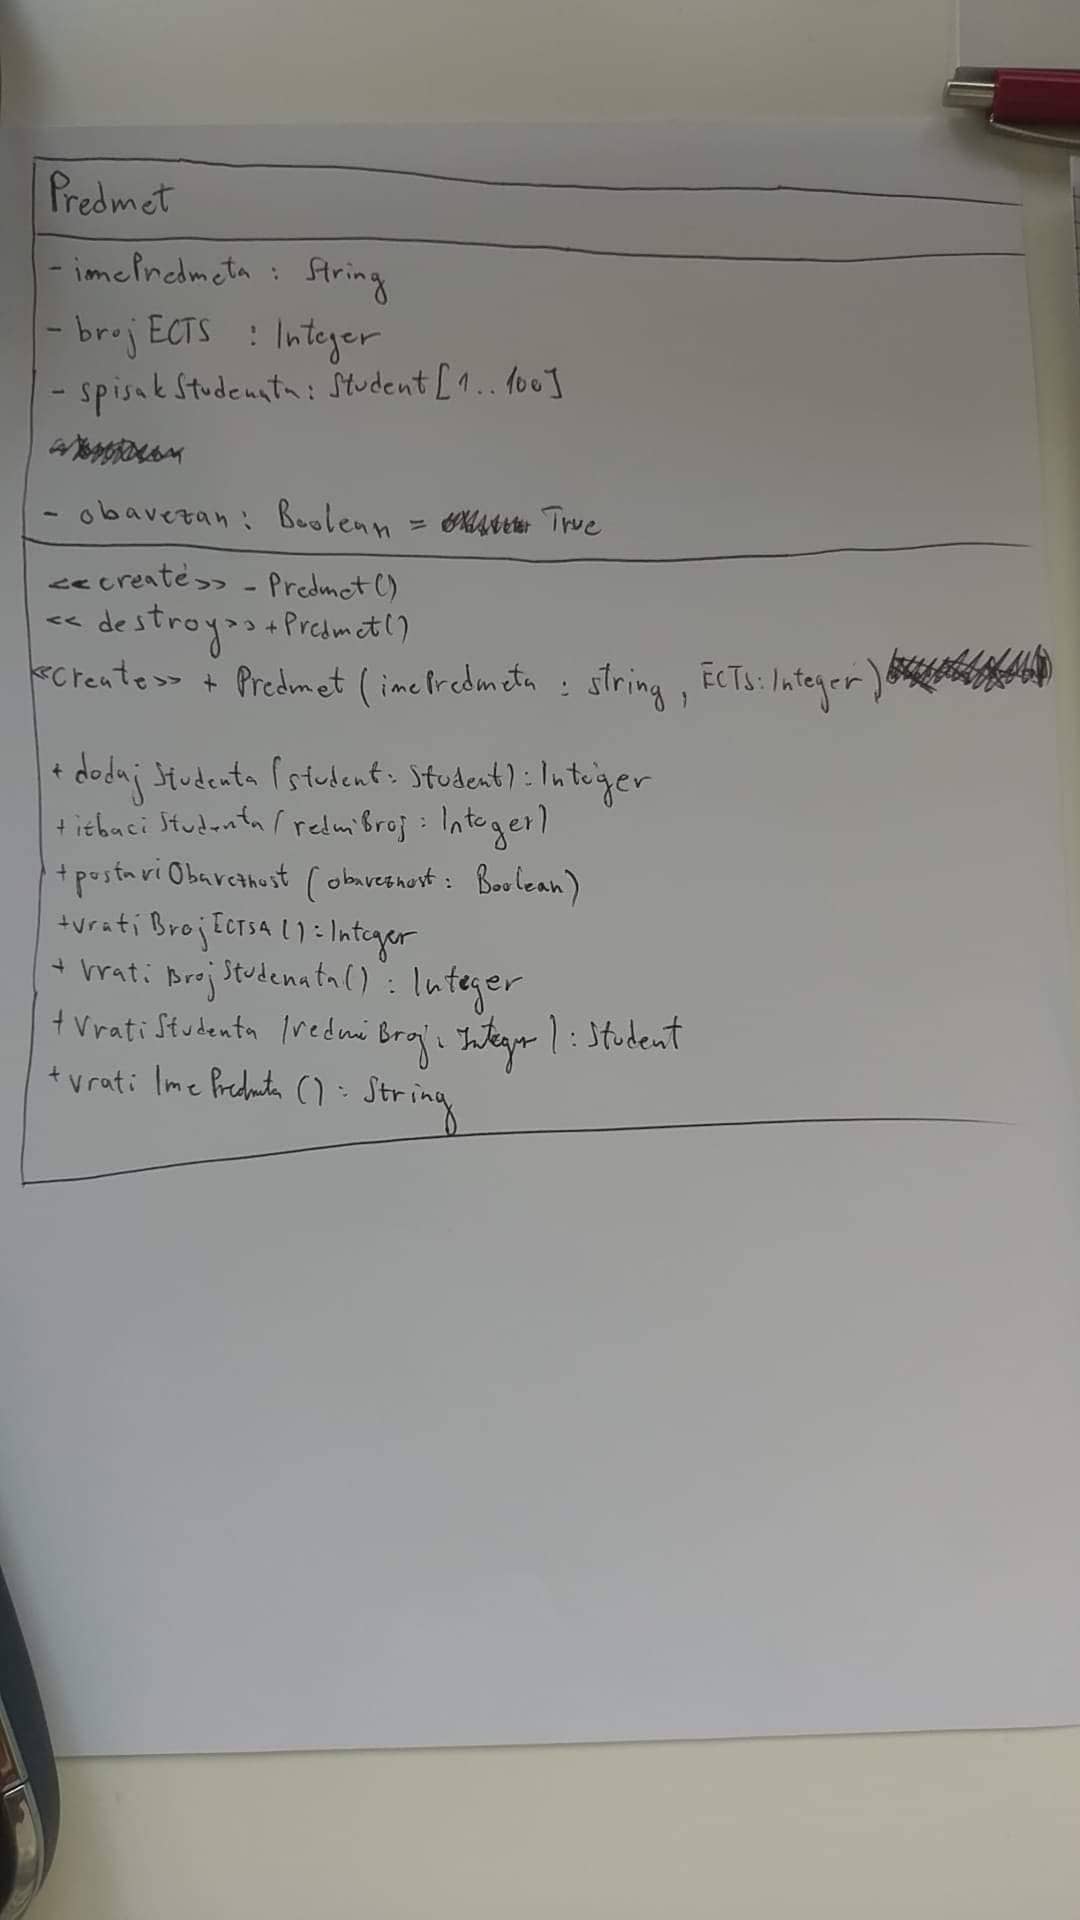 Predmet
- imePredmeta : String
- broj ECTS : Integer
- spisak Studenata : Student [1..100]
- obavezan : Boolean = True
<<create>> - Predmet()
<<destroy>> + Predmet()
<<create>> + Predmet (imePredmeta : string, ECTS : Integer)
+ dodaj Studenta (student : Student) : Integer
+ izbaci Studenta (redniBroj : Integer)
+ postaviObaveznost (obaveznost : Boolean)
+ vrati BrojECTSA () : Integer
+ vrati Broj Studenata() : Integer
+ Vrati Studenta (redni Broj : Integer) : Student
+ vrati Ime Predmeta () : String